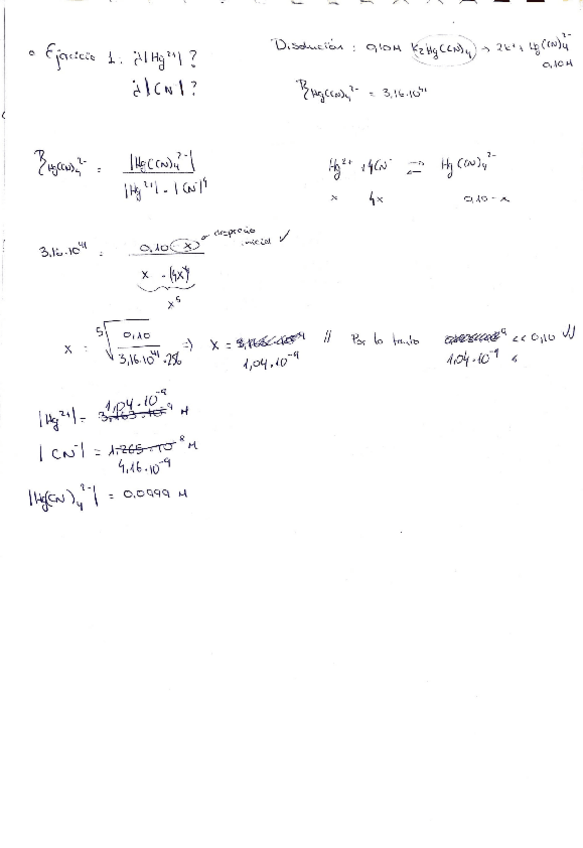 • Ejercicio 1. ¿|Hg²⁺|?
¿|CN⁻|?
Disolución: 0,10M K₂Hg(CN)₄ → 2K⁺ + Hg(CN)₄²⁻
0,10M
β Hg(CN)₄²⁻ = 3,16·10⁴¹
β Hg(CN)₄²⁻ = |Hg(CN)₄²⁻| / |Hg²⁺|·|CN⁻|⁴
Hg²⁺ + 4CN⁻ ⇌ Hg(CN)₄²⁻
x 4x 0,10-x
3,16·10⁴¹ = 0,10 - x / x·(4x)⁴
desprecio inicial ✓
x⁵
x = ⁵√(0,10 / 3,16·10⁴¹·256) ⇒ x = 1,04·10⁻⁹ // Por lo tanto 1,04·10⁻⁹ << 0,10 ✓✓
|Hg²⁺| = 1,04·10⁻⁹ M
|CN⁻| = 4,16·10⁻⁹ M
|Hg(CN)₄²⁻| = 0,0999 M